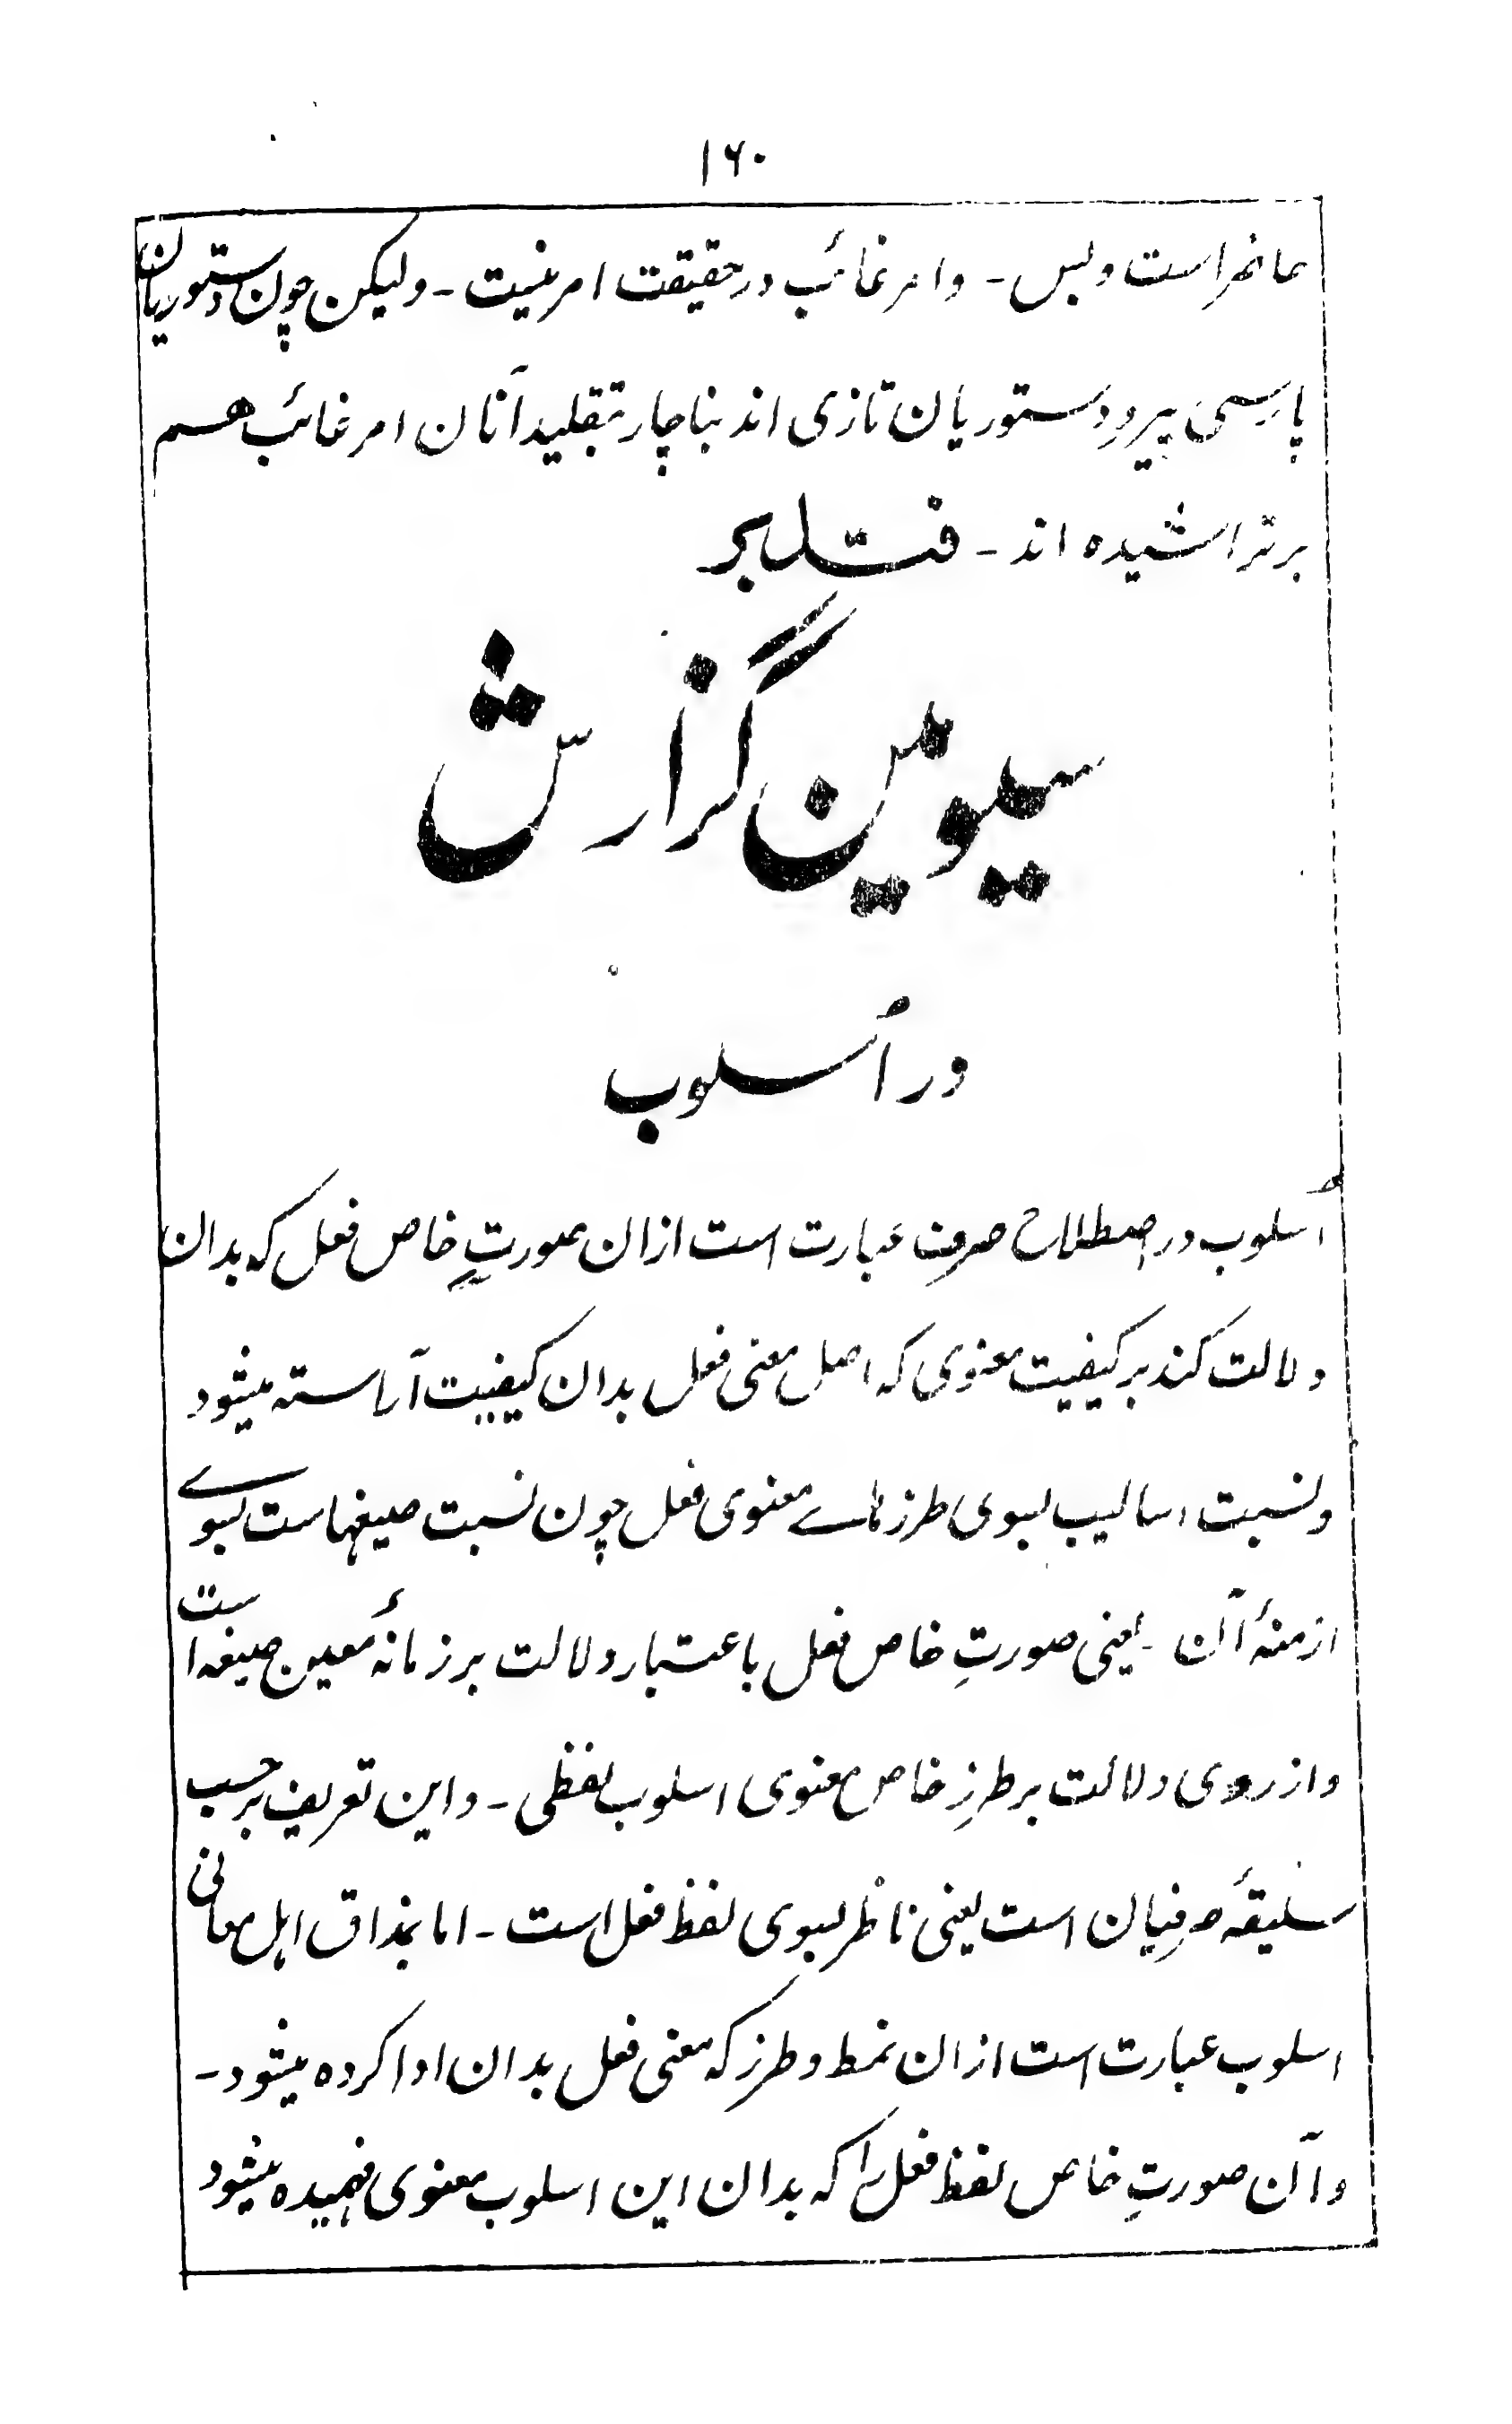 ۱۶۰
حاضر است و بس - و امر غائب در حقیقت امر نیست - ولیکن چون دستوریان
پارسی پیرو دستوریان تازی اند بناچار بتقلید آنان امر غائب هم
برتراشیده اند - فتدبر
سیومین گزارش
در اُسلوب
اُسلوب در اصطلاح صرف عبارت است ازان صورتِ خاص فعل که بدان
دلالت کند بر کیفیت معنوی که اصل معنی فعل بدان کیفیت آراسته میشود
و نسبت اسالیب بسوی طرزهاے معنوی فعل چون نسبت صیغهاست بسوے
ازمنۀ آن - یعنی صورتِ خاص فعل باعتبار دلالت بر زمانۀ معین صیغه است
و از روی دلالت بر طرزِ خاص معنوی اسلوب لفظی - و این تعریف برحسب
سلیقۀ صرفیان است یعنی ناظر بسوی لفظ فعل است - اما بمذاق اہل معانی
اسلوب عبارت است ازان نمط و طرز که معنی فعل بدان ادا کرده میشود -
و آن صورتِ خاص لفظ فعل را که بدان این اسلوب معنوی فہمیده میشود